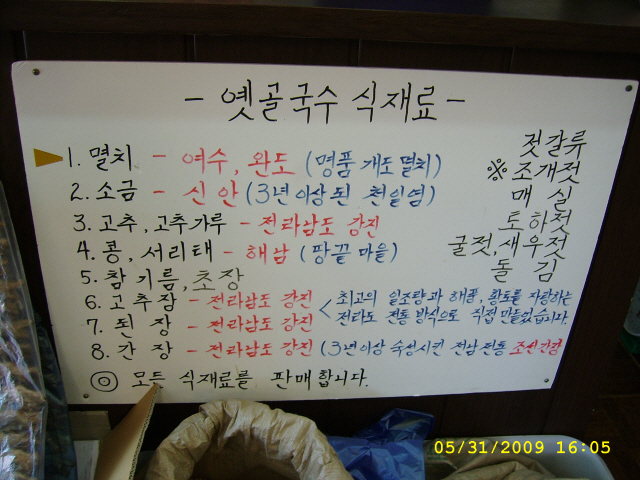 - 옛골국수 식재료 -
1. 멸치 - 여수, 완도 (명품 개도 멸치)
2. 소금 - 신안 (3년이상 된 천일염)
3. 고추, 고추가루 - 전라남도 강진
4. 콩, 서리태 - 해남 (땅끝 마을)
5. 참기름, 초장
6. 고추장 - 전라남도 강진
7. 된장 - 전라남도 강진
< 최고의 일조량과 해풍, 황토를 자랑하는
전라도 전통 방식으로 직접 만들었습니다.
8. 간장 - 전라남도 강진 (3년이상 숙성시킨 전남 전통 조선간장
◎ 모든 식재료를 판매합니다.
젓갈류
※ 조개젓
매실
토하젓
굴젓, 새우젓
돌김
05/31/2009 16:05